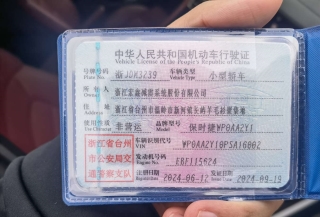 中华人民共和国机动车行驶证
Vehicle License of the People's Republic of China
号牌号码 浙JDM3739 车辆类型 小型轿车
Plate No. Vehicle Type
所有人 浙江宏鑫减震系统股份有限公司
Owner
住址 浙江省台州市温岭市新河镇
Address
使用性质 非营运 品牌型号 保时捷WP0AA2Y1
Use Character Model
浙江省台州 车辆识别代号 WP0AA2Y10PSA16002
市公安局交 VIN
通警察支队 发动机号码 EBF115624
Engine No.
注册日期 2024-06-12 发证日期 2024-09-19